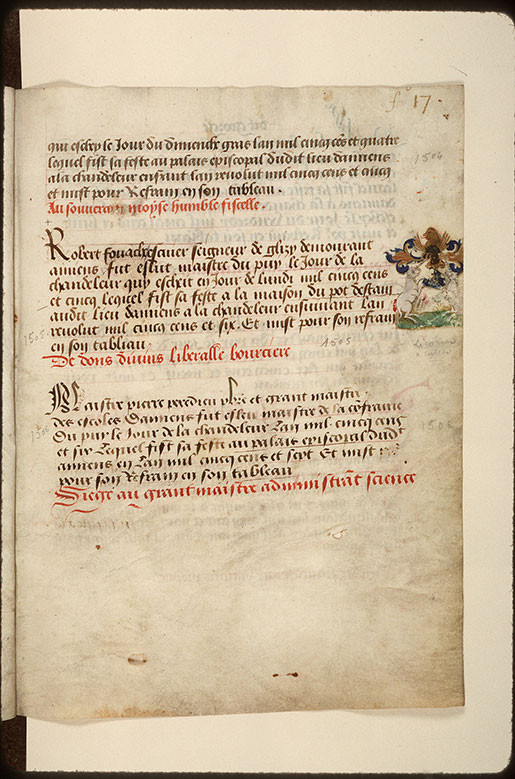 fo 17.
qui eschey le Jour du dimenche gras lan mil cincq cēs et quatre
lequel fist sa feste au palais episcopal dudit lieu damiens
a la chandeleur ensuivant lan revolut mil cincq cens et cincq
et mist pour Refrain en son tableau .
Au souverain moyse humble fiscelle .
1504
Robert fouache escuier seigneur de glizy demourant
amiens fut esleut maistre du puy le Jour de la
chandeleur quy escheit en Jour de lundi mil cincq cens
et cincq lequel fist sa feste a la maison du pot destain
audit lieu damiens a la chandeleur ensuivant lan
revolut mil cincq cens et six . Et mist pour son refrain
en son tableau
1505
1505
De dons divins liberalle boursiere
Maistre pierre perdieu pbre et grant maistre
des escoles Damiens fut esleu maistre de la cōfrarie
Du puy le Jour de la chandeleur Lan mil cincq cens
et six Lequel fist sa feste au palais episcopal dudt
amiens en Lan mil cincq cens et sept Et mist
pour son Refrain en son tableau
1506
1506
Siege au grant maistre administrāt science